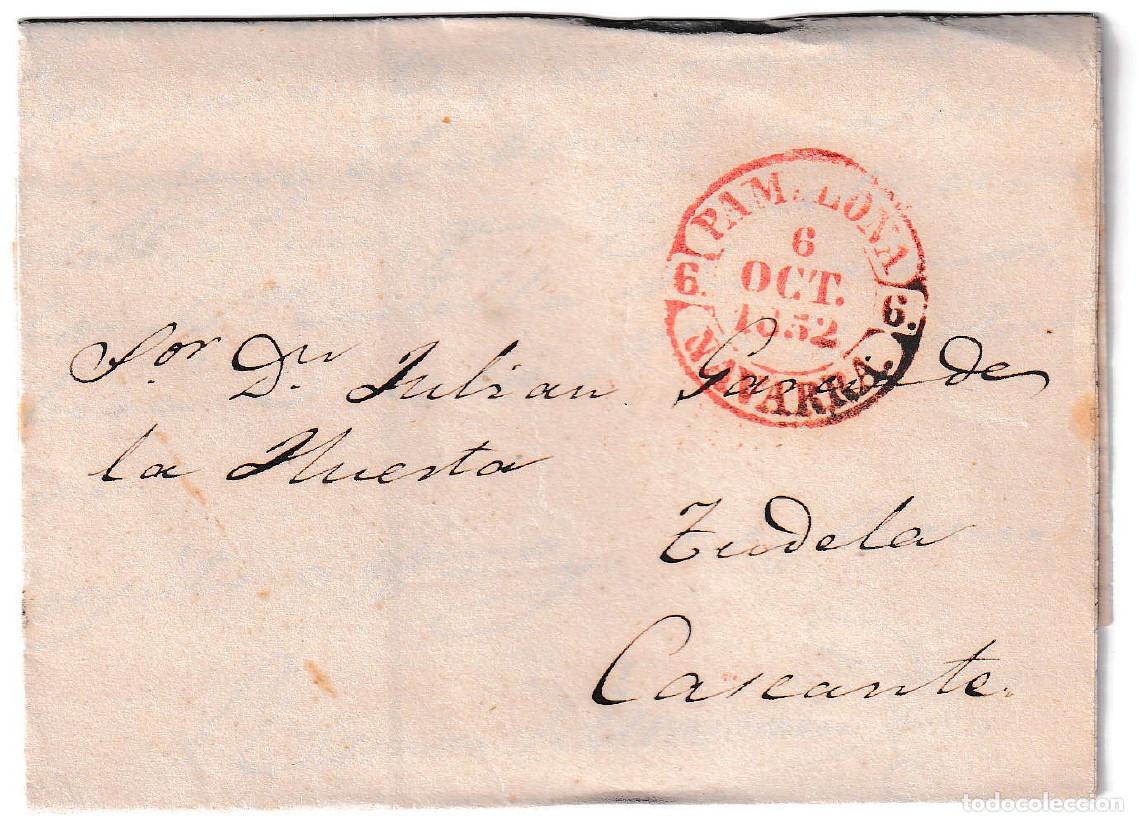 PAM. LONA
6
OCT.
1852
6. 6.
NAVARRA.
Sor Dn Julian de
la Huerta
Tudela
Cascante.
todocoleccion